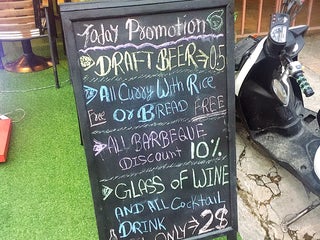 Today Promotion
DRAFT BEER → 0.5
All Curry With Rice
Free OR BREAD FREE
ALL BARBEQUE
DISCOUNT 10%
GLASS OF WINE
AND All Cocktail
DRINK
ONLY → 2$